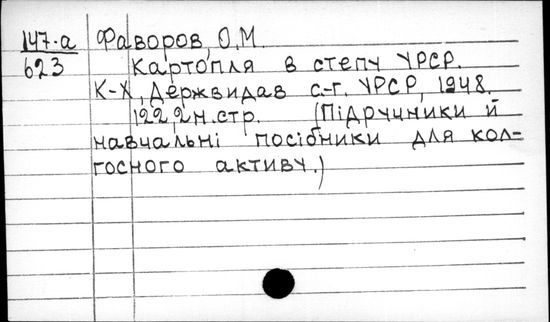 147-а Фаворов, О.М.
623 Картопля в степу УРСР.
К-Х, Держвидав с.-г. УРСР, 1948.
122,2н.стр. (Підручники й
навчальні посібники для кол-
госного активу.)